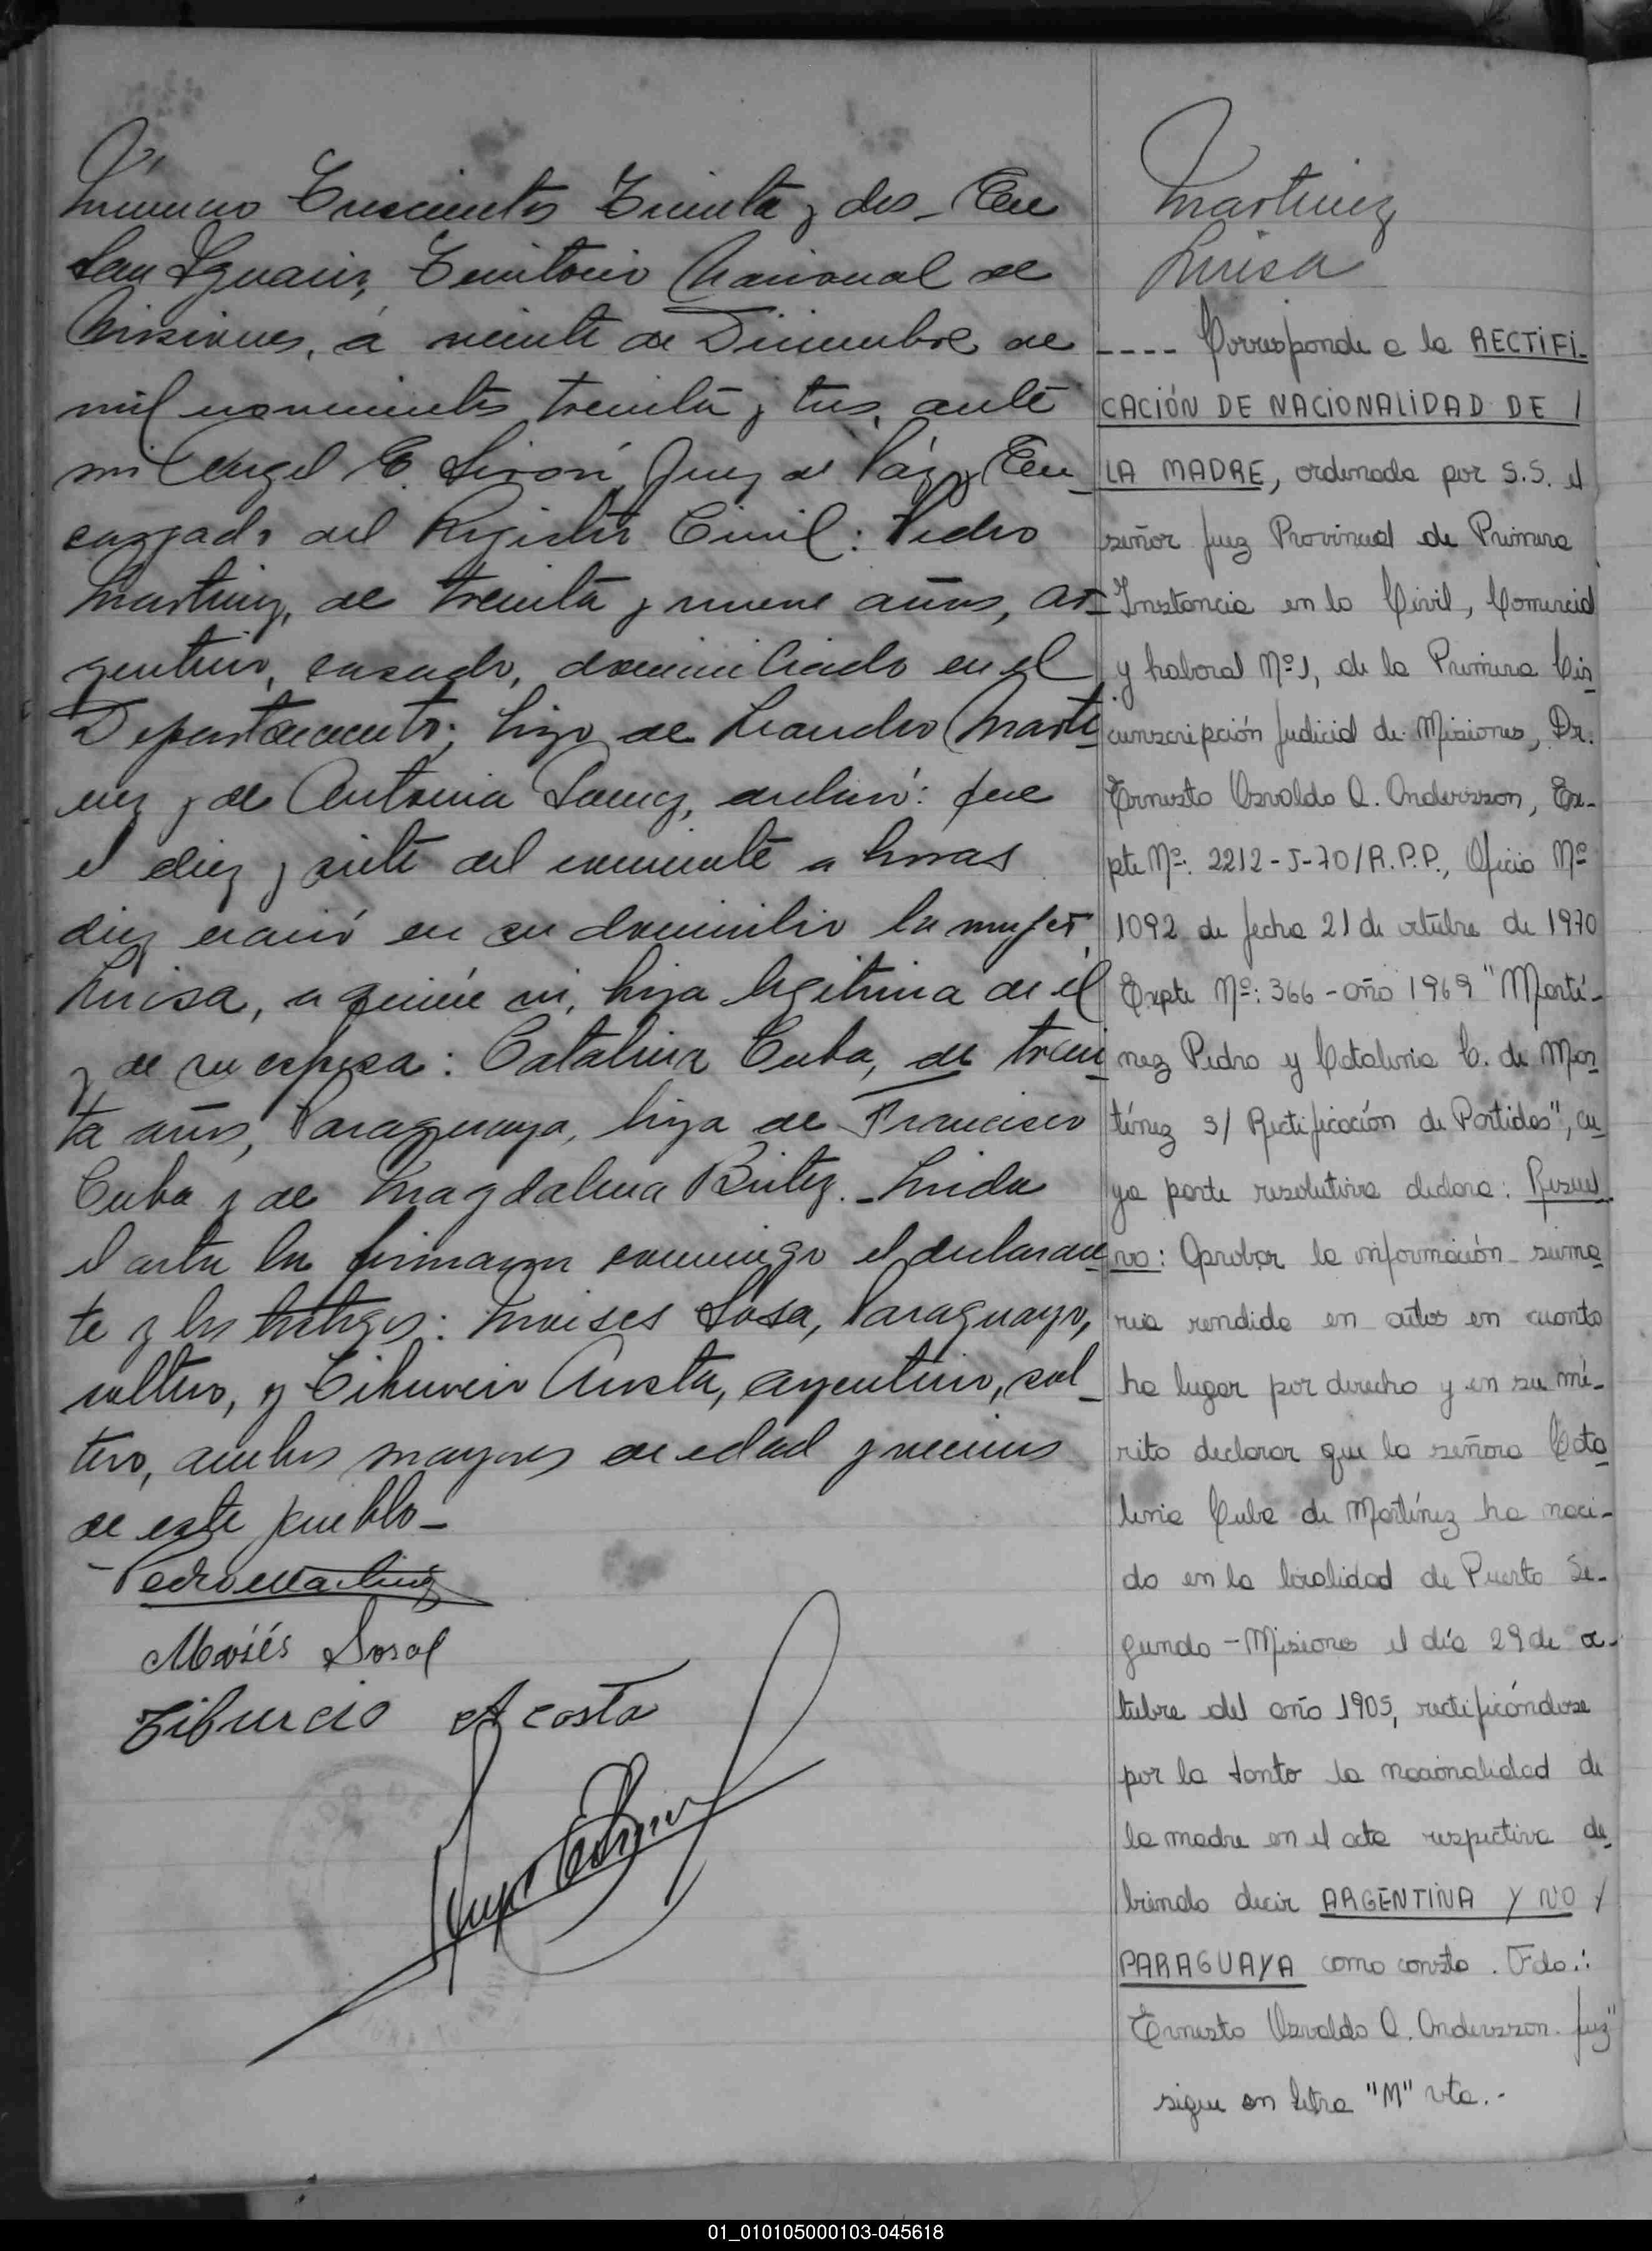 Número Trescientos Treinta y dos - En
San Ignacio, Territorio Nacional de
Misiones, á veinte de Diciembre de
mil novecientos treinta y tres, ante
mi Angel E. Sirón, Juez de Páz y En-
cargado del Registro Civil: Pedro
Martinez, de treinta y nueve años, ar-
gentino, casado, domiciliado en el
Departamento; hijo de Leandro Marti-
nez y de Antonia, declaró: que
el diez y siete del corriente a horas
diez nació en su domicilio la mujer
Luisa, a quién vi, hija legitima de él
y de su esposa: Catalina Cuba, de trein-
ta años, Paraguaya, hija de Francisco
Cuba y de Magdalena Britez. - Leida
el acta la firmaron conmigo el declaran-
te y los testigos: Moises Sosa, Paraguayo,
soltero, y Tiburcio Acosta, argentino, sol-
tero, ambos mayores de edad y vecinos
de este pueblo -
Pedro Martinez
Moisés Sosa
Tiburcio Acosta
Martinez
Luisa
---- Corresponde a la RECTIFI-
CACIÓN DE NACIONALIDAD DE /
LA MADRE, ordenada por S.S. el
señor Juez Provincial de Primera
Instancia en lo Civil, Comercial
y Laboral Nº 1, de la Primera Cir-
cunscripción Judicial de Misiones, Dr.
Ernesto Osvaldo Q. Andersson, Ex-
pte Nº: 2212-J-70/R.P.P., Oficio Nº
1092 de fecha 21 de octubre de 1970
Expte Nº: 366 - año 1969 "Martí-
nez Pedro y Catalina C. de Mar-
tínez s/ Rectificación de Partidas", cu-
ya parte resolutiva declara: Resuel-
vo: Aprobar la información suma-
ria rendida en autos en cuanto
ha lugar por derecho y en su mé-
rito declarar que la señora Cata-
lina Cuba de Martínez ha naci-
do en la localidad de Puerto Se-
gundo - Misiones el día 29 de oc-
tubre del año 1905, rectificándose
por lo tanto la nacionalidad de
la madre en el acta respectiva de-
biendo decir ARGENTINA Y NO /
PARAGUAYA como consta. Fdo.:
Ernesto Osvaldo Q. Andersson. Juez"
sigue en letra "M" vta.-
01_010105000103-045618